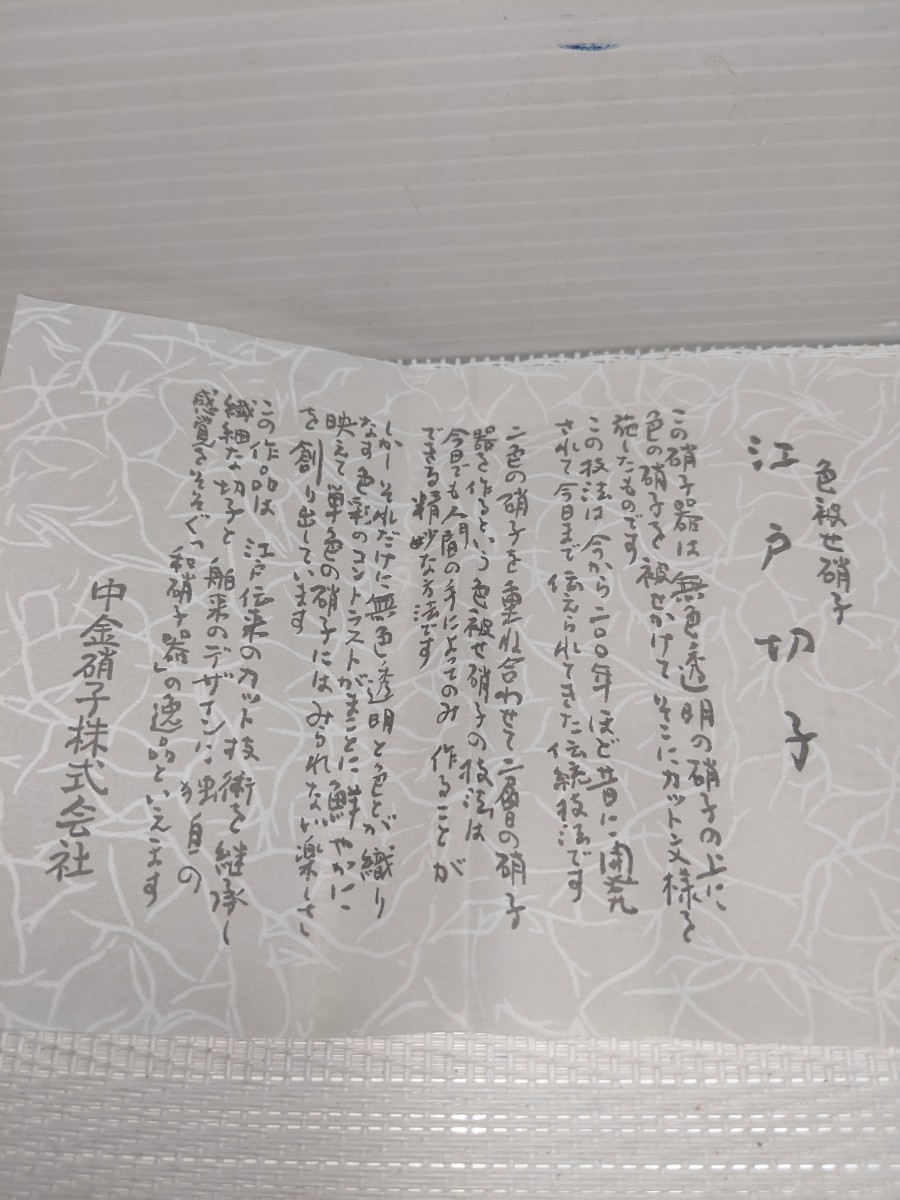 色被せ硝子
江戸切子
この硝子器は 無色・透明の硝子の上に、
色の硝子を 被せかけて そこにカット文様を
施したものです
この技法は 今から二〇〇年ほど昔に 開発
されて 今日まで 伝えられてきた 伝統技法です
二色の硝子を 重ね合わせて 二層の硝子
器を作るという 色被せ硝子の技法は
今日でも 人間の手によってのみ 作ることが
できる 精妙な方法です
しかし それだけに 無色・透明と色とが 織り
なす色彩のコントラストが まことに鮮やかに
映えて 単色の硝子には みられない 楽しさ
を 創り出しています
この作品は 江戸伝来のカット技術を 継承し
繊細な切子と 舶来のデザインに 独自の
感覚をそそぐ 和硝子器の逸品といえます
中金硝子株式会社